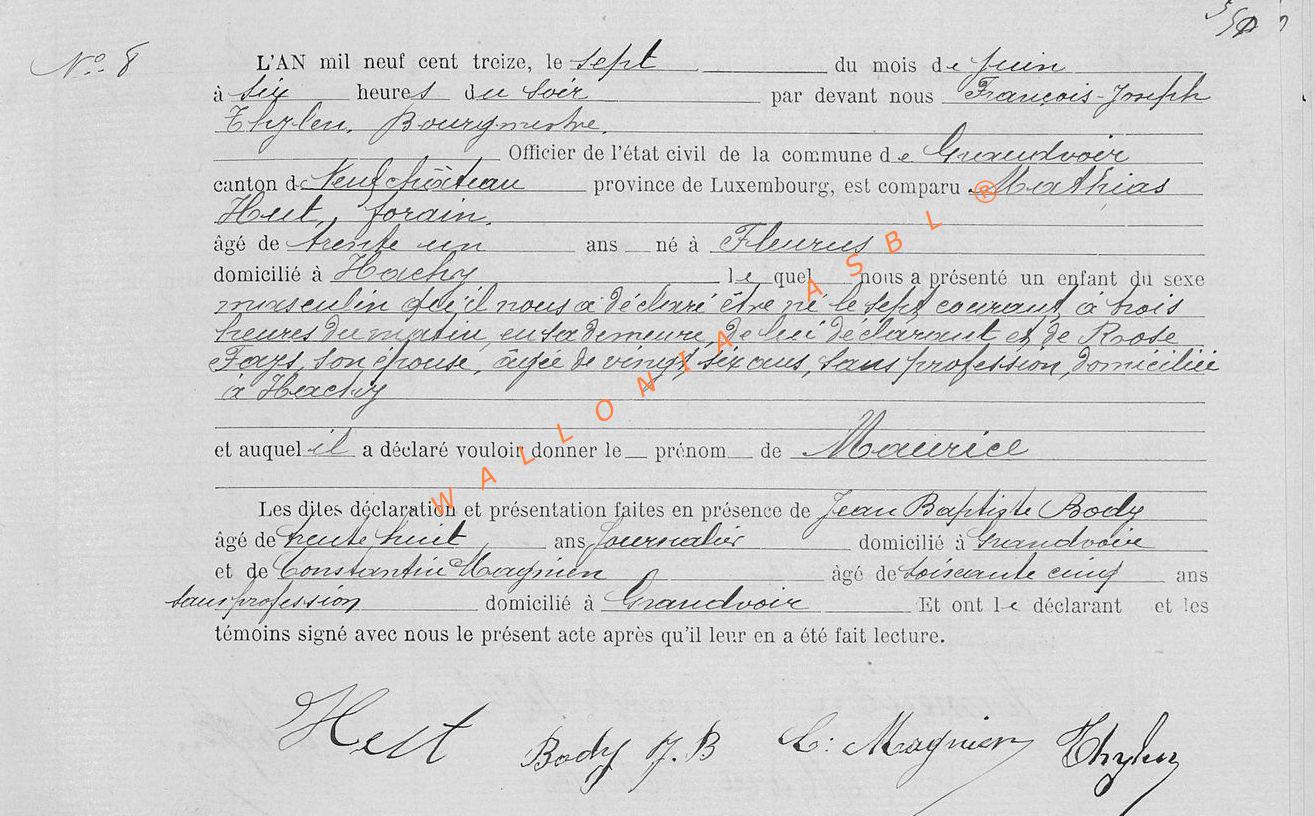 No. 8
L'AN mil neuf cent treize, le sept du mois de Juin
à six heures du soir par devant nous François-Joseph
Thylen, Bourgmestre.
Officier de l'état civil de la commune de Grandvoir
canton de Neufchâteau province de Luxembourg, est comparu Mathias
forain,
âgé de trente un ans né à Fleurus
domicilié à Hachy le quel nous a présenté un enfant du sexe
masculin qu'il nous a déclaré être né le sept courant, à trois
heures du matin, en sa demeure, de lui déclarant et de Rose
Fays, son épouse, âgée de vingt six ans, sans profession, domiciliée
à Hachy
et auquel il a déclaré vouloir donner le prénom de Maurice
Les dites déclaration et présentation faites en présence de Jean Baptiste Body
âgé de trente huit ans Journalier domicilié à Grandvoir
et de Constantin Magnien âgé de soixante cinq ans
sans profession domicilié à Grandvoir Et ont le déclarant et les
témoins signé avec nous le présent acte après qu'il leur en a été fait lecture.
Body J. B C. Magnien Thylen
WALLONIA ASBL ®